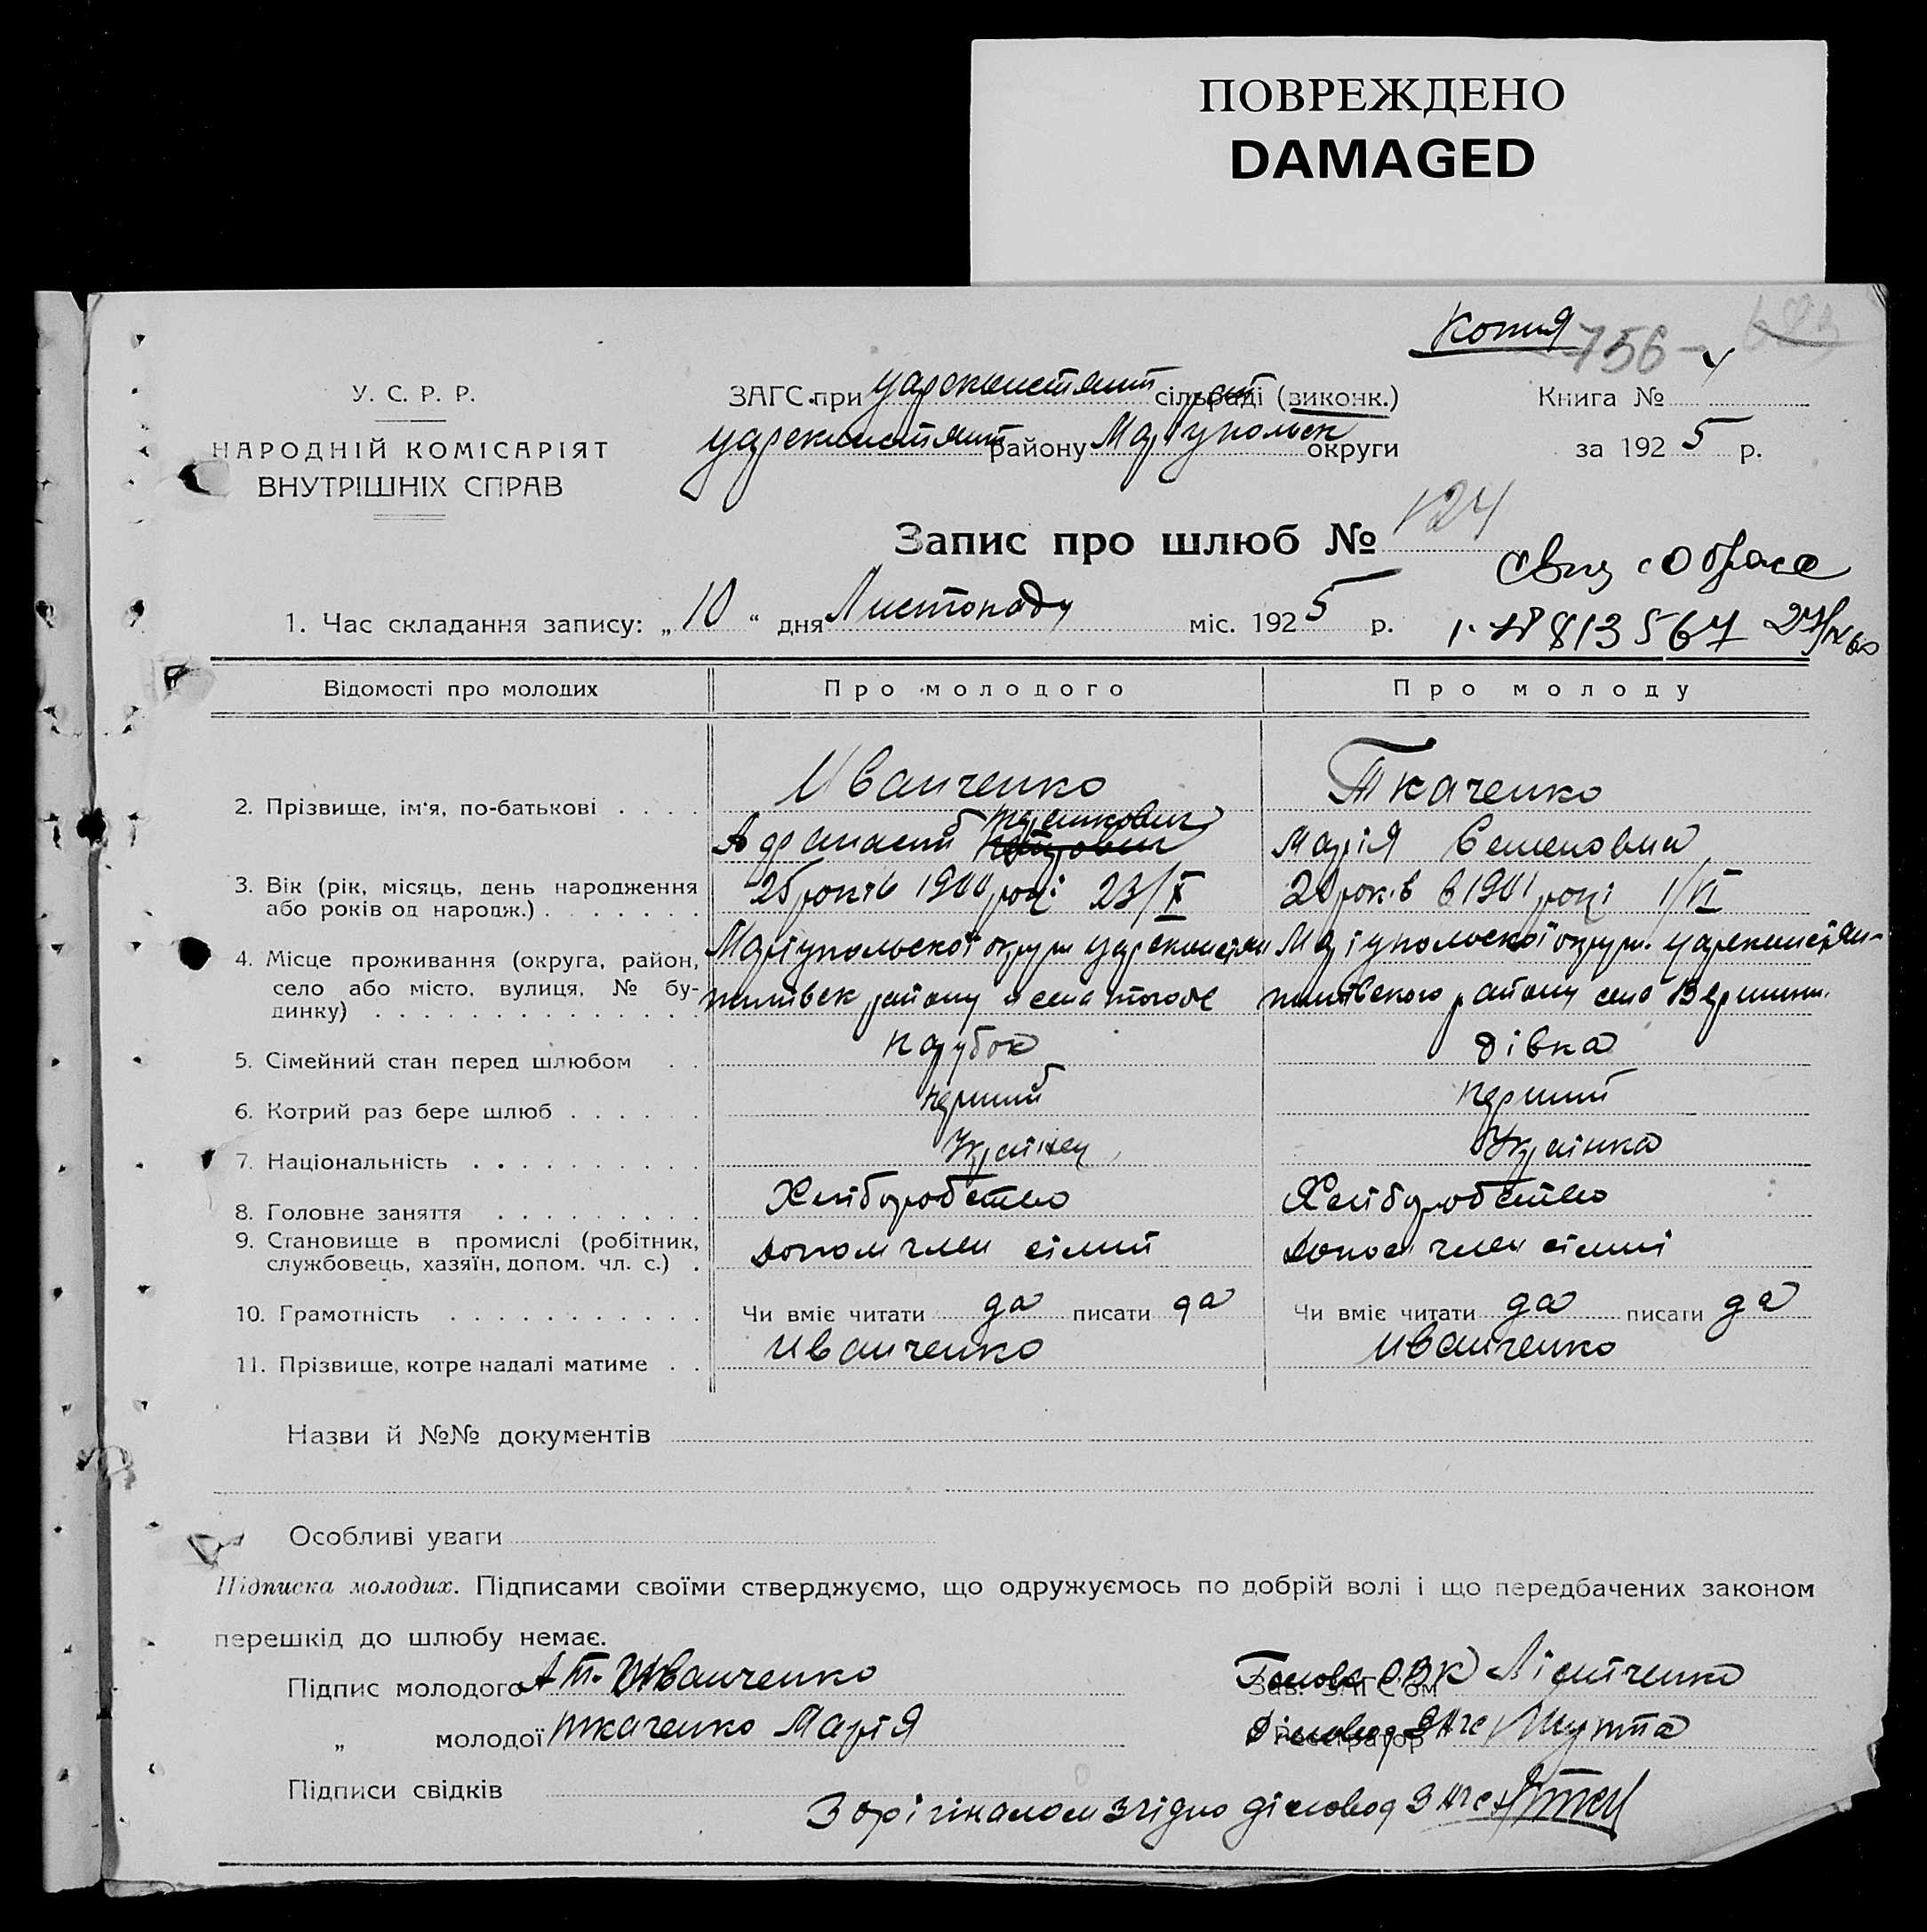 ПОВРЕЖДЕНО
DAMAGED
Копия
756
У. С. Р. Р.
ЗАГС при Царекинстянт сільраді (виконк.) Книга №
Царекинстянт району Маріупольск округи за 1925 р.
НАРОДНІЙ КОМІСАРІЯТ
ВНУТРІШНІХ СПРАВ
Запис про шлюб № 124
1. Час складання запису: „10“ дня Листопаду міс. 1925 р.
№ 813567
Відомості про молодих Про молодого Про молоду
Иванченко Ткаченко
2. Прізвище, ім'я, по-батькові
Афанасий Марія Семеновна
3. Вік (рік, місяць, день народження 25 років 1900 році 23/X років в 1901 році 1/VI
або років од народж.)
4. Місце проживання (округа, район, Маріупольскої округи Маріупольскої округи
село або місто, вулиця, № бу- району села району село
динку)
5. Сімейний стан перед шлюбом парубок дівка
6. Котрий раз бере шлюб перший перший
7. Національність Українец Українка
8. Головне заняття Хліборобство Хліборобство
9. Становище в промислі (робітник, допом член сімйї допом член сімйі
службовець, хазяїн, допом. чл. с.)
10. Грамотність Чи вміє читати да писати да Чи вміє читати да писати да
11. Прізвище, котре надалі матиме Иванченко Иванченко
Назви й №№ документів
Особливі уваги
Підписка молодих. Підписами своїми стверджуємо, що одружуємось по добрій волі і що передбачених законом
перешкід до шлюбу немає.
Підпис молодого А Т. Иванченко Зав. ЗАГС'ом Голова РВК
„ молодої Ткаченко Марія Реєстратор Діловод Загс
Підписи свідків
З орігіналом згідно діловод Загс